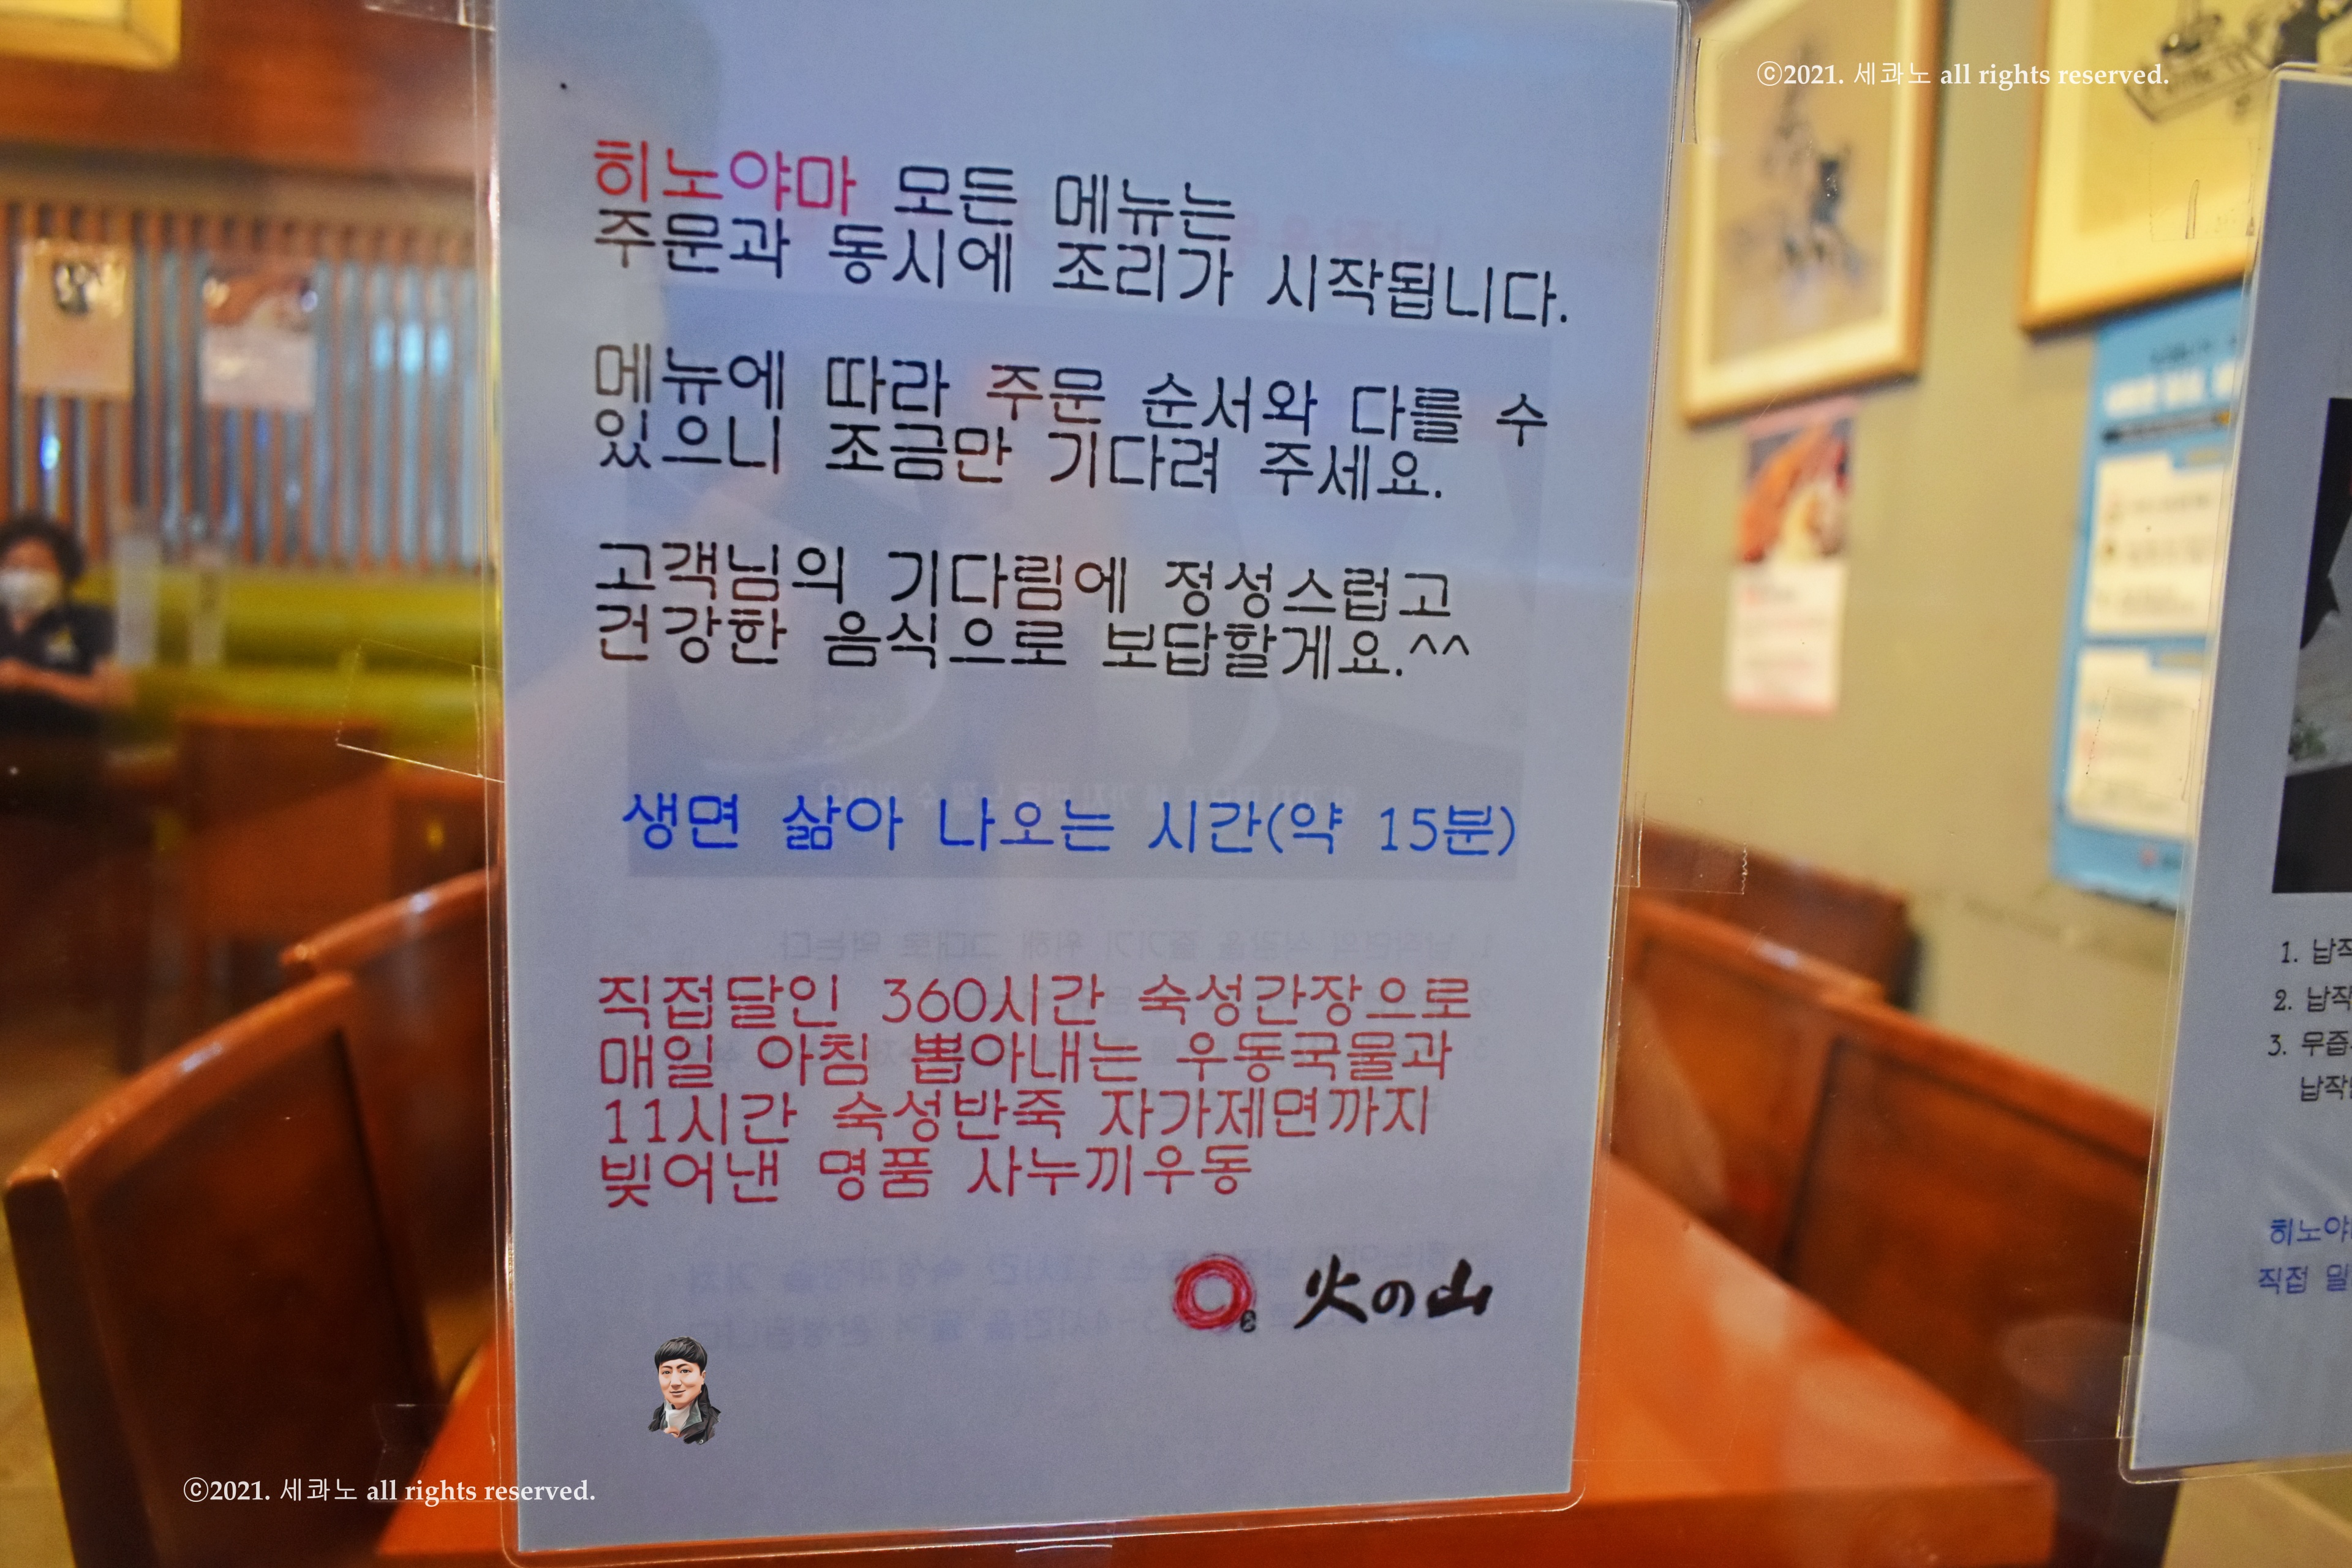 ⓒ2021. 세콰노 all rights reserved.
히노야마 모든 메뉴는
주문과 동시에 조리가 시작됩니다.
메뉴에 따라 주문 순서와 다를 수
있으니 조금만 기다려 주세요.
고객님의 기다림에 정성스럽고
건강한 음식으로 보답할게요.^^
생면 삶아 나오는 시간(약 15분)
직접달인 360시간 숙성간장으로
매일 아침 뽑아내는 우동국물과
11시간 숙성반죽 자가제면까지
빚어낸 명품 사누끼우동
火の山
1. 납작
2. 납작
3. 무즙
납작
히노야
직접 밀
ⓒ2021. 세콰노 all rights reserved.